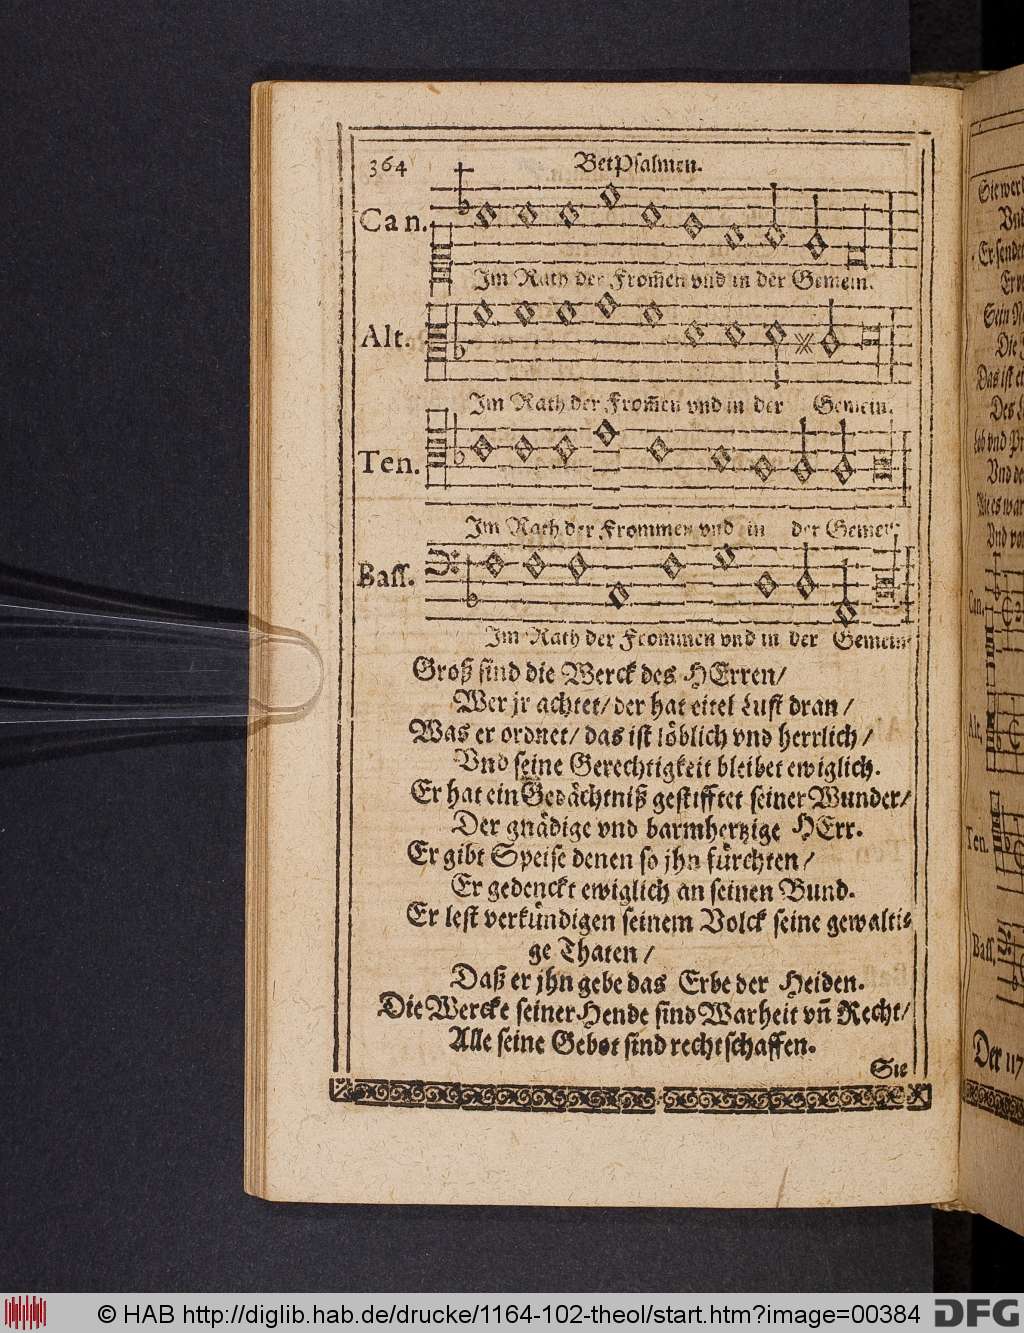 364 BetPsalmen.
Can.
Im Rath der From̃en vnd in der Gemein.
Alt.
Im Rath der From̃en vnd in der Gemein.
Ten.
Im Rath der Frommen vnd in der Gemein
Bass.
Im Rath der Frommen vnd in der Gemein
Groß sind die Werck des HErren/
Wer jr achtet/ der hat eitel Lust dran/
Was er ordnet/ das ist löblich vnd herrlich/
Vnd seine Gerechtigkeit bleibet ewiglich.
Er hat ein Gedächtniß gestifftet seiner Wunder/
Der gnädige vnd barmhertzige HErr.
Er gibt Speise denen so jhn fürchten/
Er gedenckt ewiglich an seinen Bund.
Er lest verkündigen seinem Volck seine gewalti-
ge Thaten/
Daß er jhn gebe das Erbe der Heiden.
Die Wercke seiner Hende sind Warheit vñ Recht/
Alle seine Gebot sind rechtschaffen.
Sie
Sie wer
Vnd
Er sende
Sein N
Die
Das ist ei
Des
Lob vnd Pr
Vnd de
Can.
Alt.
Ten.
Bass.
Der 117
© HAB http://diglib.hab.de/drucke/1164-102-theol/start.htm?image=00384
DFG